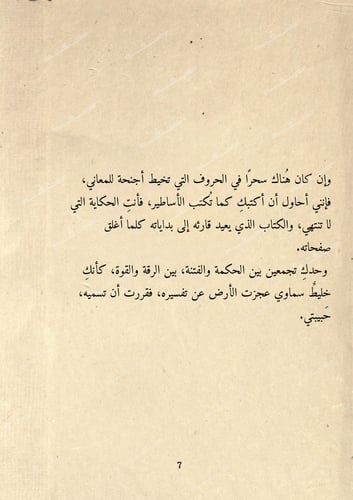 وإن كان هُناك سحرًا في الحروف التي تخيط أجنحة للمعاني،
فإنني أحاول أن أكتبكِ كما تُكتب الأساطير، فأنتِ الحكاية التي
لا تنتهي، والكتاب الذي يعيد قارئه إلى بداياته كلما أغلق
صفحاته.
وحدكِ تجمعين بين الحكمة والفتنة، بين الرقة والقوة، كأنكِ
خليطٌ سماوي عجزت الأرض عن تفسيره، فقررت أن تسميه،
حَبيبتي.
7